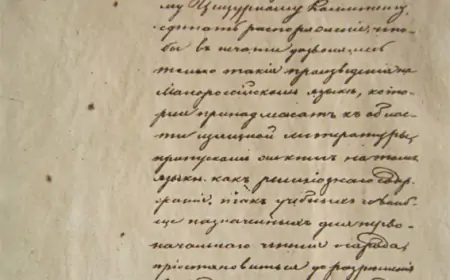 му Цензурному Комитету,
сделать распоряженіе, что-
бы къ печати дозволялись
только такія произведенія на
Малороссійскомъ языкѣ, кото-
рыя принадлежатъ къ облас-
ти изящной литературы;
пропускомъ же книгъ на томъ
языкѣ какъ религіознаго содер-
жанія, такъ учебныхъ и вооб-
ще назначенныхъ для перво-
начальнаго чтенія народа,
пріостановиться до разрѣшенія